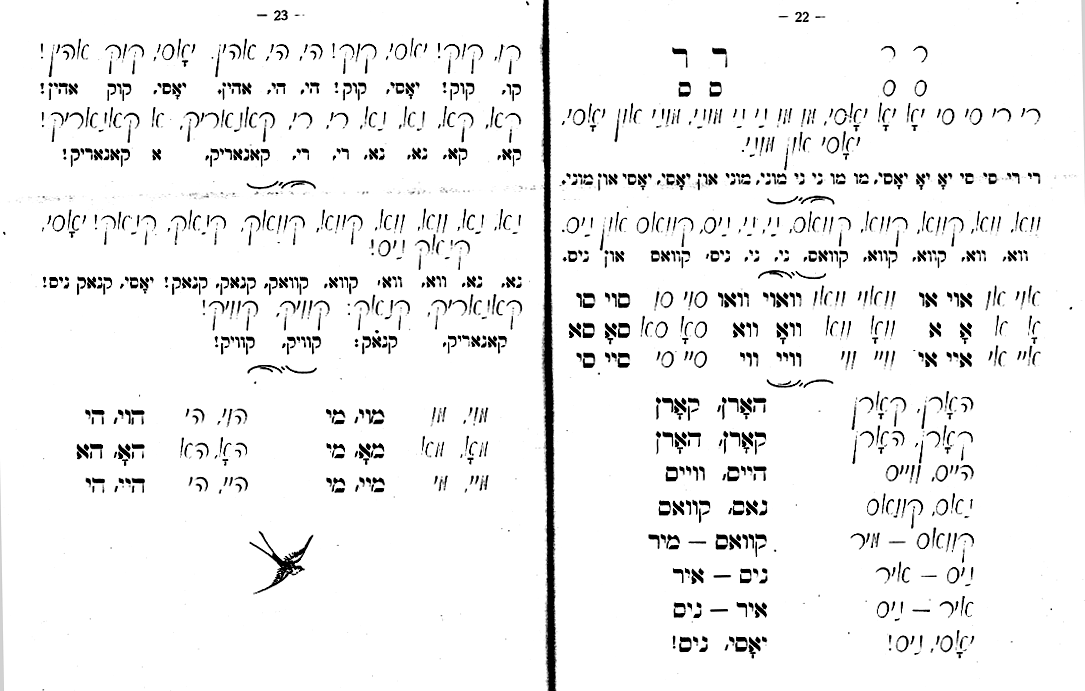 – 22 –
ר ר ר ר
ס ס ס ס
רי רי סי סי יאָ יאָ יאָסי, מו מו ני ני מוני, מוני און יאָסי,
יאָסי און מוני.
רי רי סי סי יאָ יאָ יאָסי, מו מו ני ני מוני, מוני און יאָסי, יאָסי און מוני.
ווא, ווא, קווא, קווא, קוואס, ני, ני, ניס, קוואס און ניס.
ווא, ווא, קווא, קווא, קוואס, ני, ני, ניס, קוואס און ניס.
אוי או אוי או וואוי וואו וואוי וואו סוי סו סוי סו
אָ א אָ א וואָ ווא וואָ ווא סאָ סא סאָ סא
איי אי איי אי ווייִ ווי ווייִ ווי סיי סי סיי סי
האָרן, קאָרן האָרן, קאָרן
קאָרן, האָרן קאָרן, האָרן
הייס, ווייס הייס, ווייס
נאס, קוואס נאס, קוואס
קוואס — מיר קוואס — מיר
ניס — איר ניס — איר
איר — ניס איר — ניס
יאָסי, ניס! יאָסי, ניס!
– 23 –
קו, קוק! יאָסי, קוק! הי, הי, אהין. יאָסי, קוק אהין!
קו, קוק! יאָסי, קוק! הי, הי, אהין. יאָסי, קוק אהין!
קא, קא, נא, נא, רי, רי, קאנאריק, א קאנאריק!
קא, קא, נא, נא, רי, רי, קאנאריק, א קאנאריק!
נא, נא, ווא, ווא, קווא, קוואק, קנאק, קנאק! יאָסי,
קנאק ניס!
נא, נא, ווא, ווא, קווא, קוואק, קנאק, קנאק! יאָסי, קנאק ניס!
קאנאריק, קנאק: קוויק, קוויק!
קאנאריק, קנאק: קוויק, קוויק!
מוי, מו מוי, מו הוי, הו הוי, הו
מאָ, מא מאָ, מא האָ, הא האָ, הא
מיי, מי מיי, מי היי, הי היי, הי